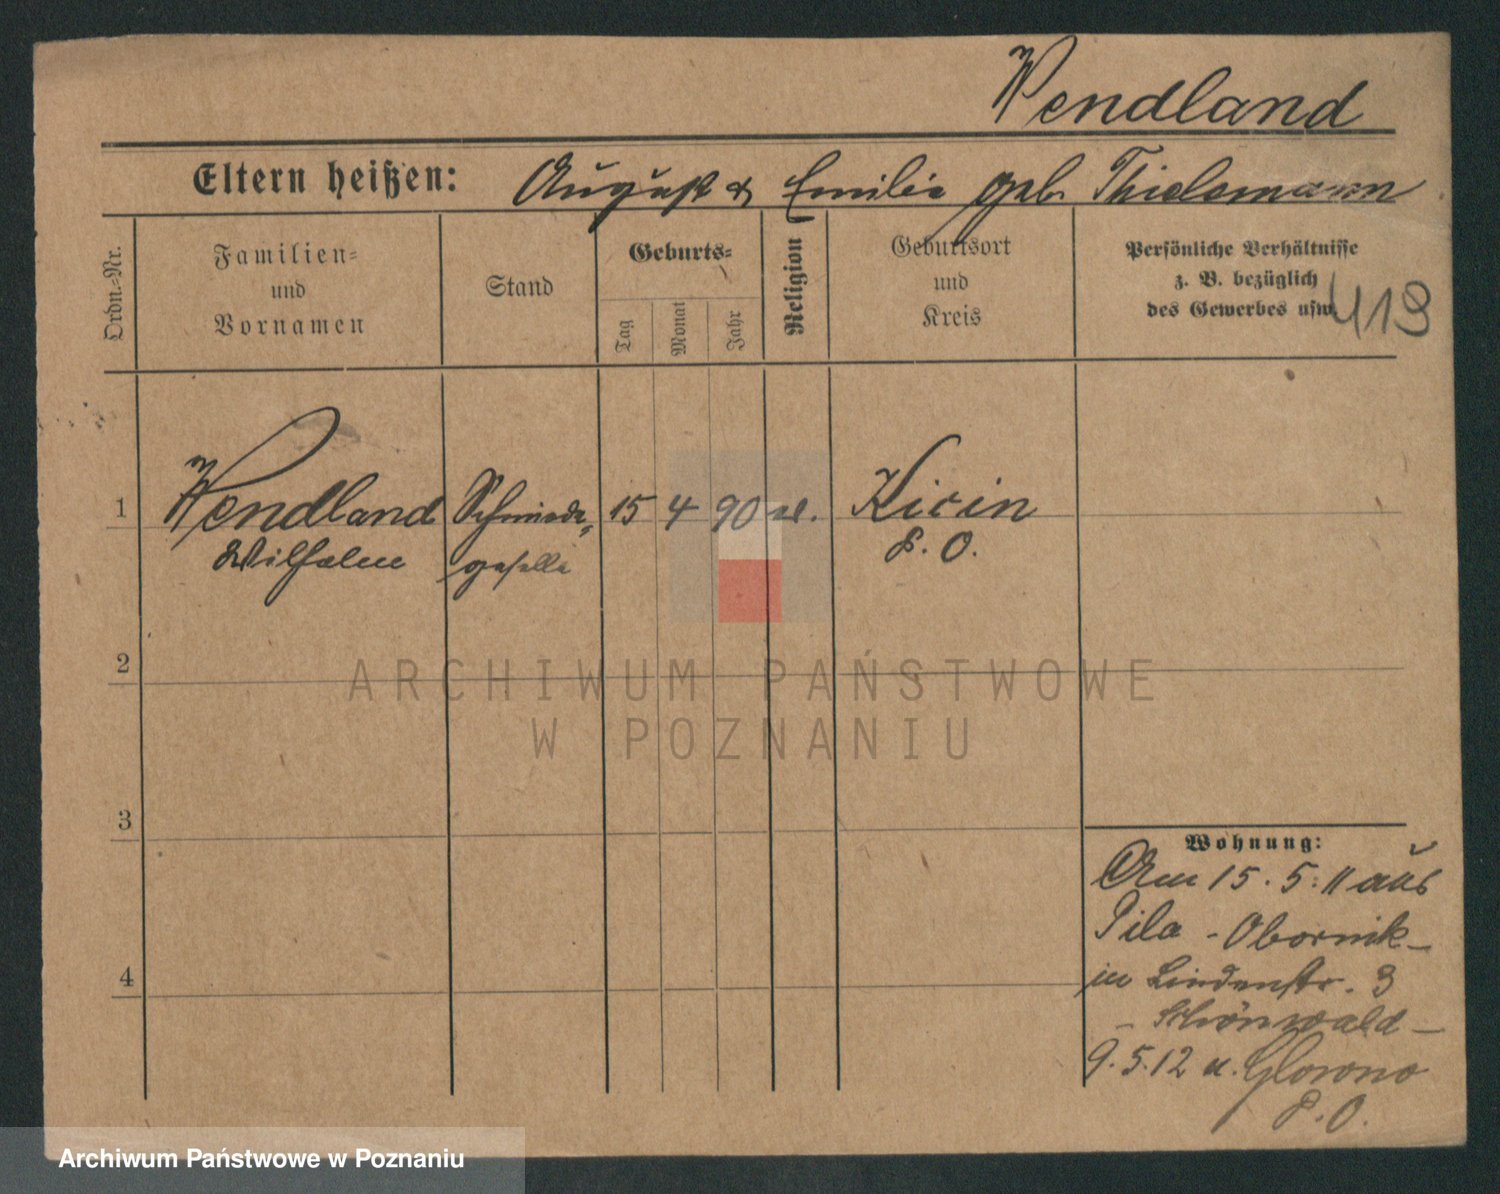 Wendland
Eltern heißen: August & Emilie geb. Thielemann
Ordn.-Nr.
Familien-
und
Vornamen
Stand
Geburts-
Tag
Monat
Jahr
Religion
Geburtsort
und
Kreis
Persönliche Verhältnisse
z. B. bezüglich
des Gewerbes usw.
413
1 Wendland Schmiede- 15 4 90 Kicin
Wilhelm geselle P. O.
2
3
4
ARCHIWUM PAŃSTWOWE
W POZNANIU
Wohnung:
Am 15. 5. 11 aus
Pila - Obornik -
in Lindenstr. 3
- Schönwald -
9. 5. 12 n. Glowno
P. O.
Archiwum Państwowe w Poznaniu